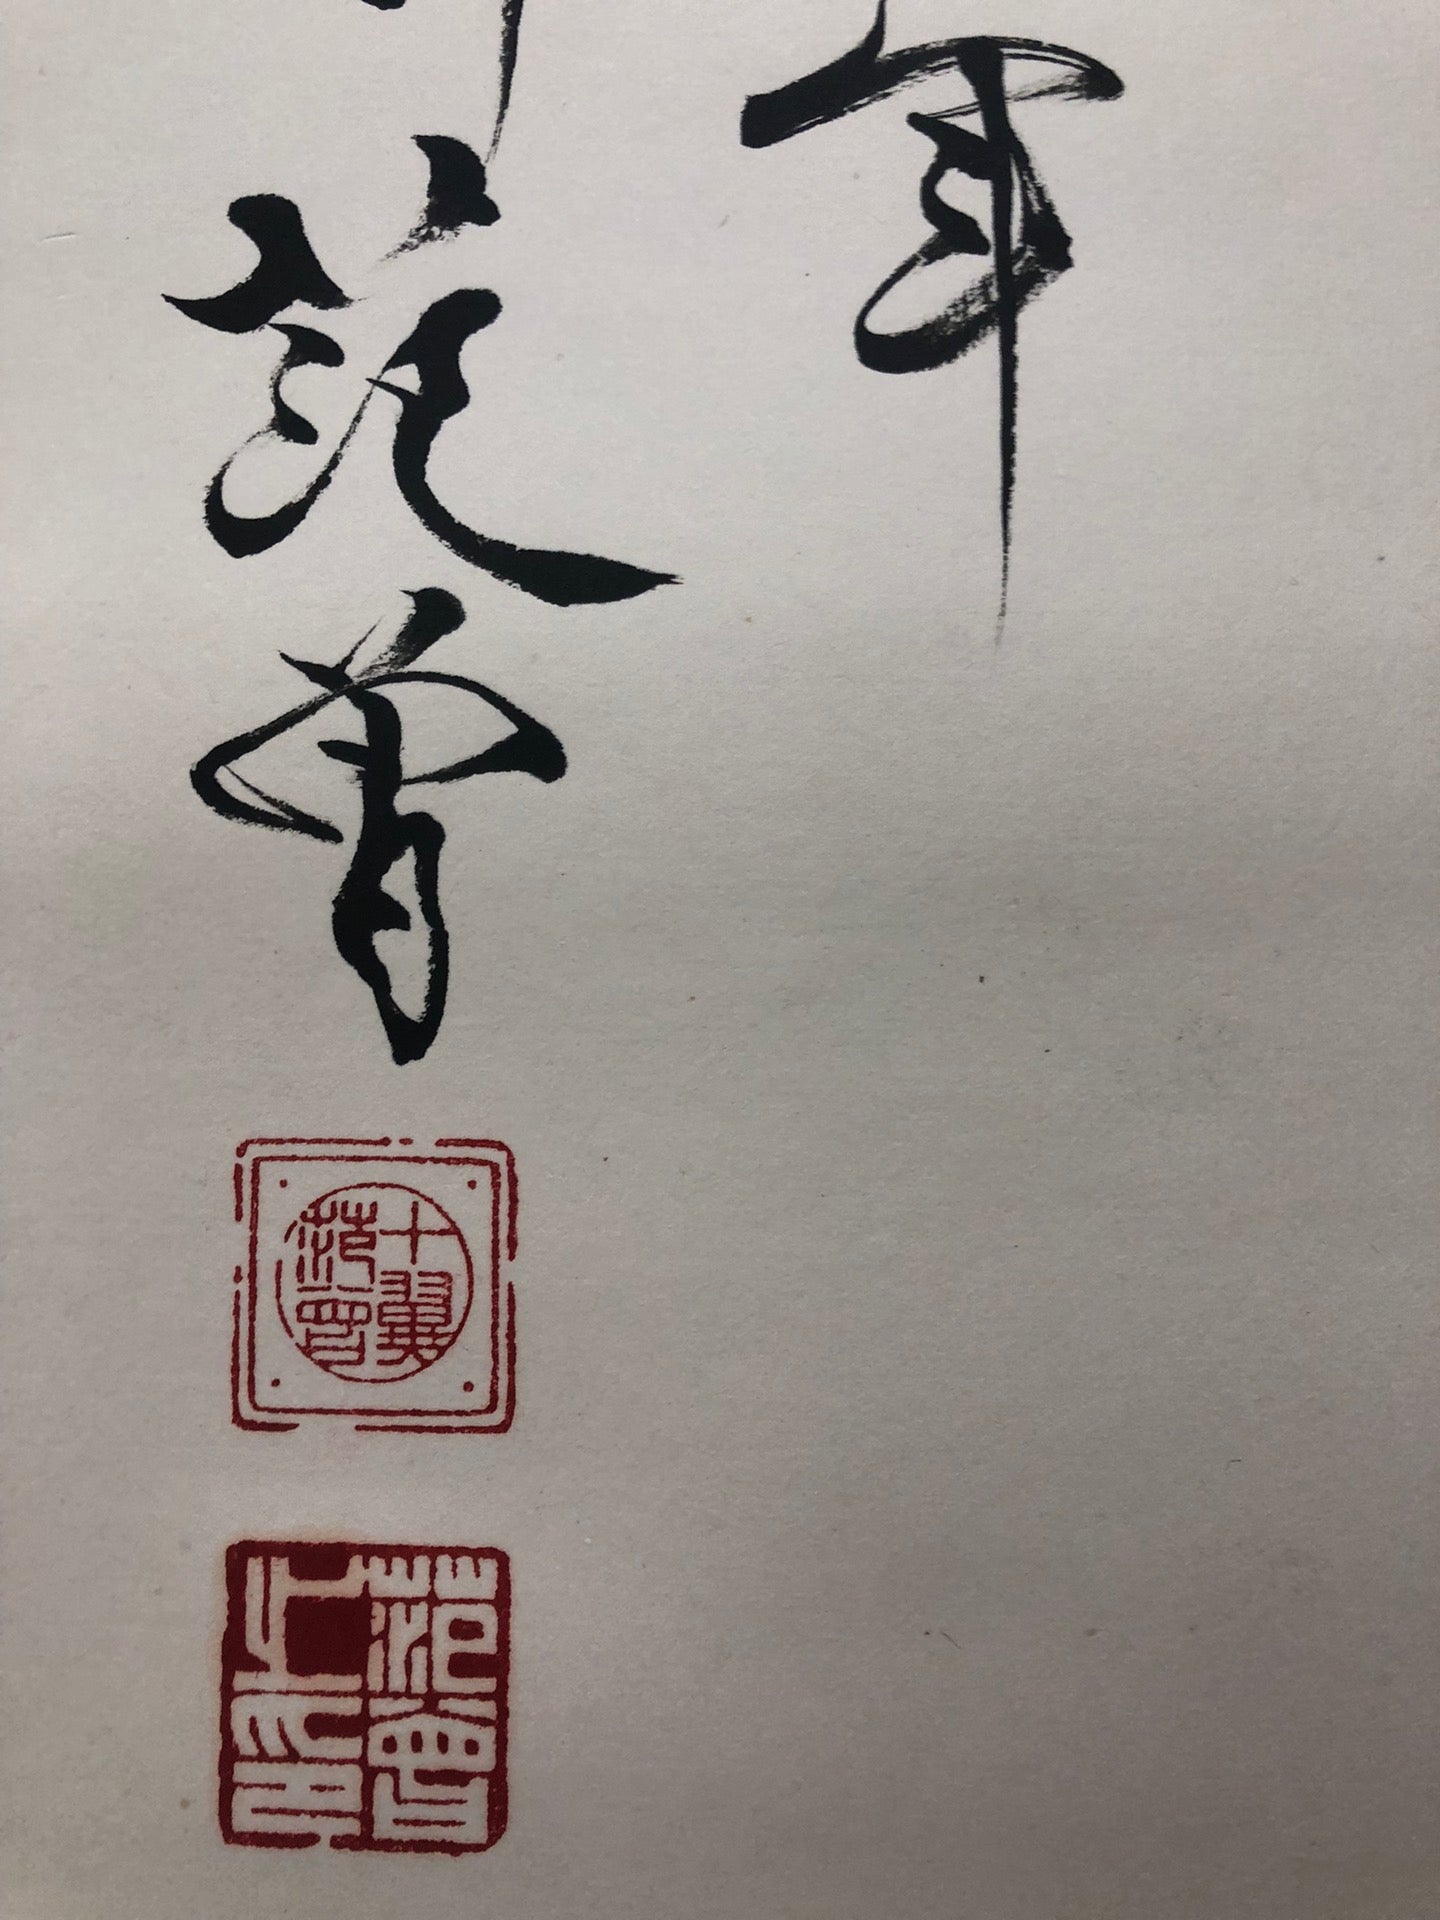 范曾
十翼
范曾
范曾
之印